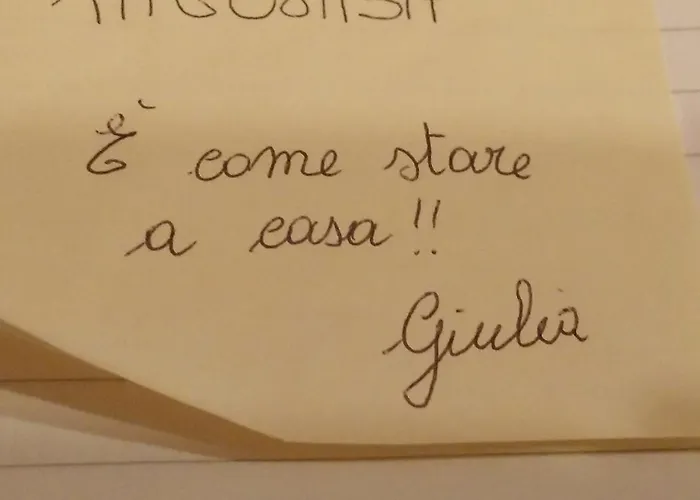 È come stare
a casa!!
Giulia